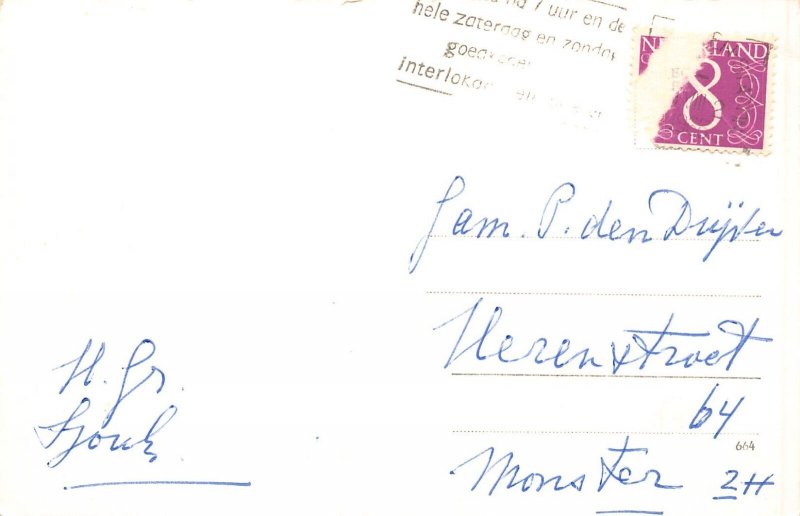 na 7 uur en de
hele zaterdag en zondag
goedkoper
interlokaal
NEDERLAND
8
CENT
Fam. P. den Duijver
Herenstraat
64
664
Monster ZH
H. Gr.